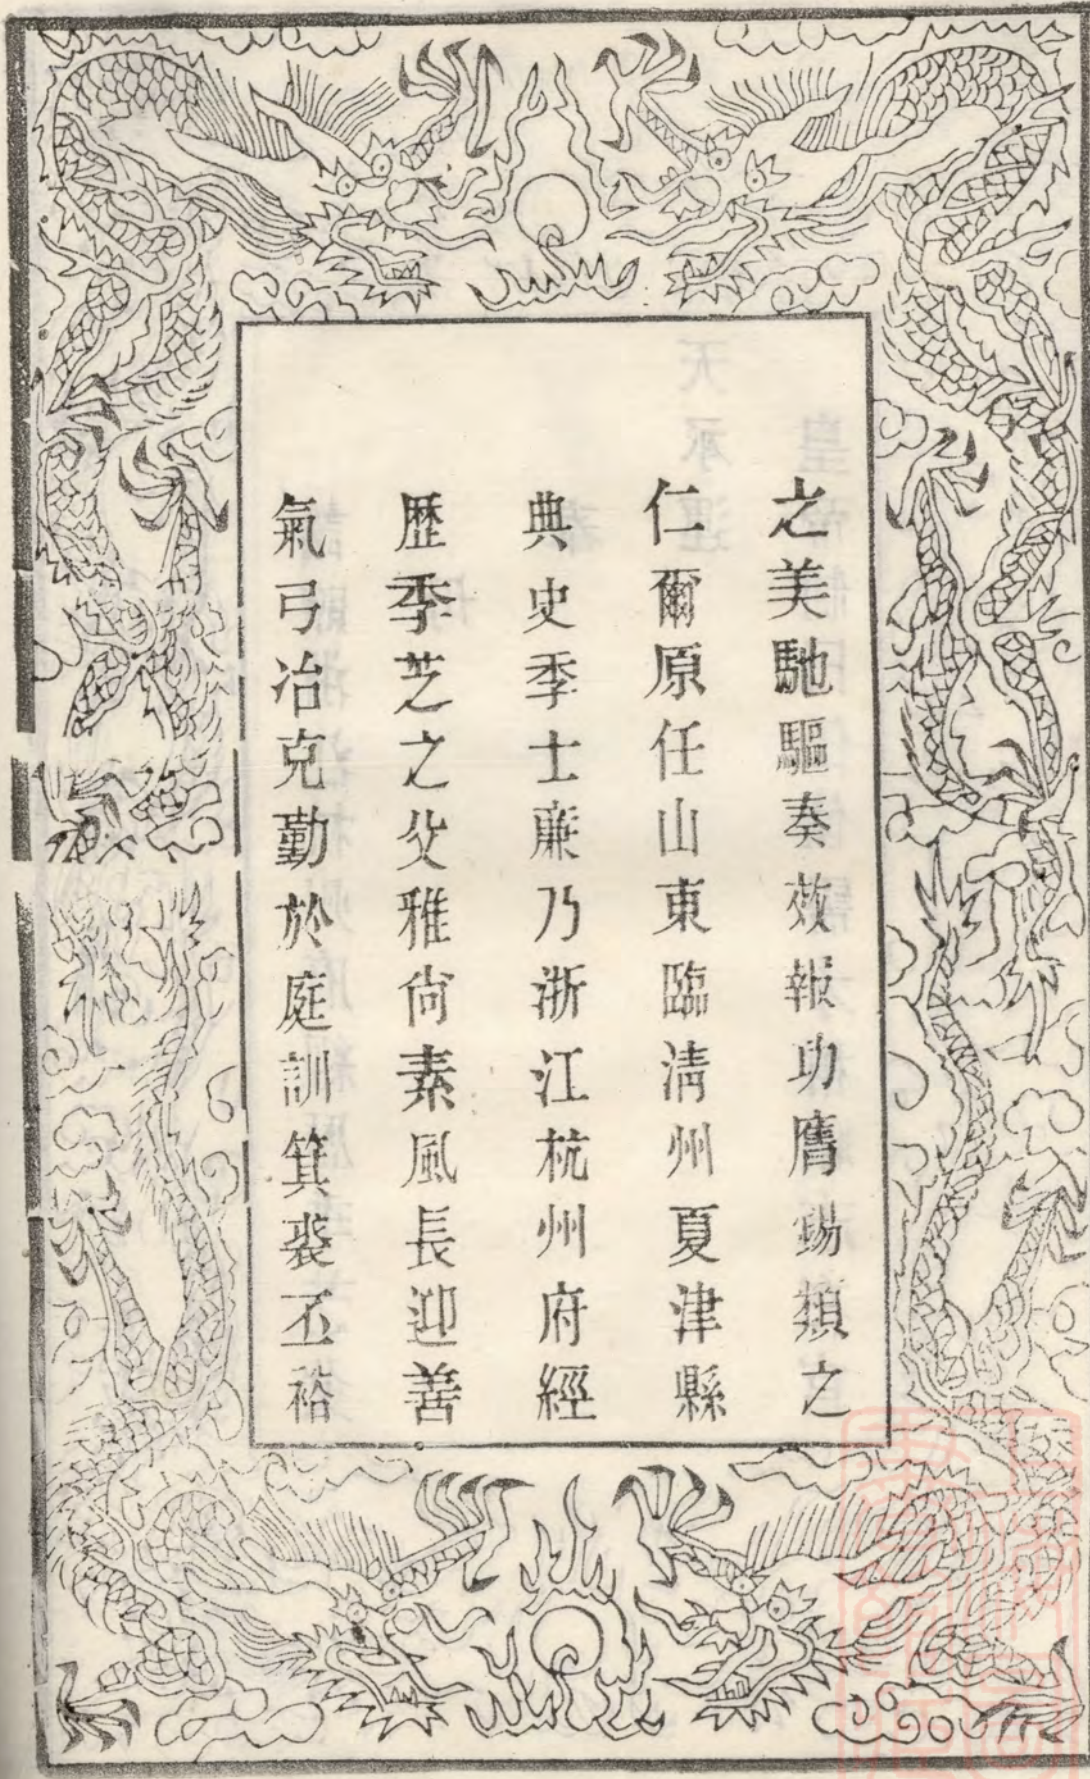 之美馳驅奏效報功膺錫類之
仁爾原任山東臨清州夏津縣
典史季士亷乃浙江杭州府經
歷季芝之父雅尚素風長迎善
氣弓冶克勤於庭訓箕裘丕裕